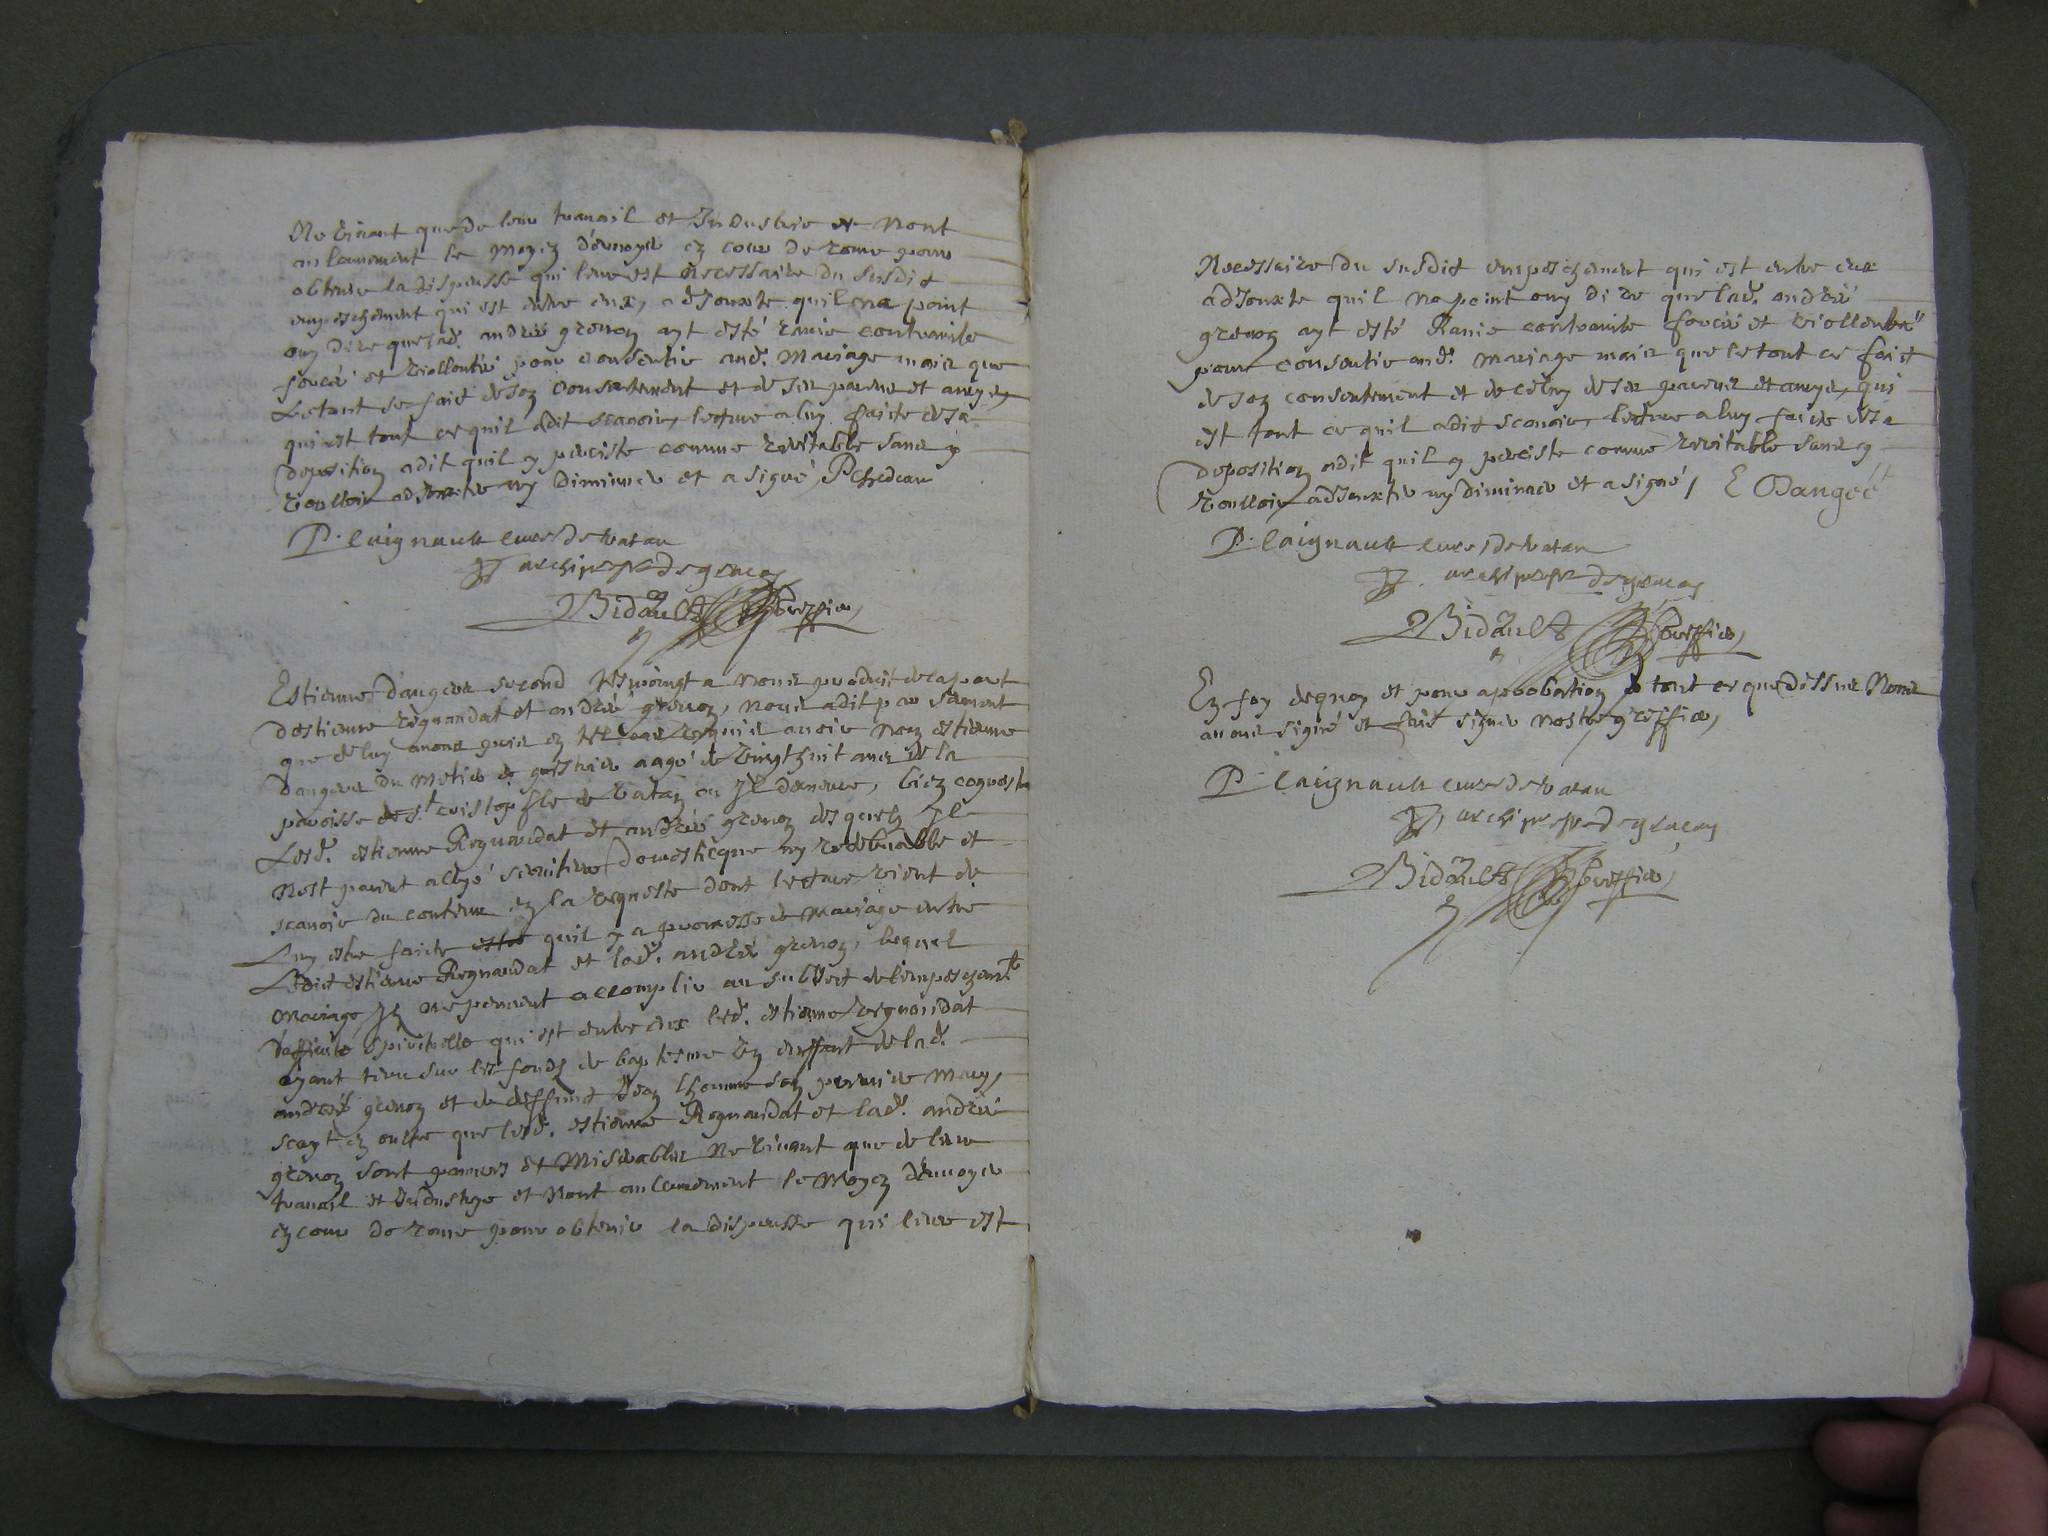 Ne vivant que de leur travail et Industrie et Nont
aulcunement le moyen d'envoyer en cour de rome pour
obtenir la dispense qui leur est necessaire du susdit
empeschement qui est entre eux, adjouxte quil na point
ouy dire que lad. andrée grenon ayt esté ravie contrainte
forcée et viollentée pour consentir aud. Mariage mais que
Le tout se faict de son consentement et de ses parens et amys
qui est tout ce quil a dit scavoir, lecture a luy faicte de sa
deposition a dit quil y perciste comme veritable sans y
voulloir adjouxter ny diminuer et a signé, P Chedeau
P. laignault curé de vatan
et archiprestre de gracay
Bidault Greffier,
Estienne dangeer second tesmoingt a nous produit de la part
destienne regnaudat et andrée grenon, nous a dit par serment
que de luy avons pris en tel cas requis avoir nom estienne
Dangeer du metier de aagé de vingt huit ans de la
paroisse de st cristophle de vatan ou Il demeure, bien cognoistre
Lesd. estienne Regnaudat et andrée grenon desquels Il
Nest parent allyé serviteur domesticque ny redebvable et
scavoir du contenu en la requeste dont lecture vient de
Luy estre faicte quil y a promesse de mariage entre
Ledict estienne Regnaudat et lad. andrée grenon, lequel
Mariage Ils ne peuvent accomplir au subject de lempeschemt
daffinité spirituelle qui est entre eux led. estienne regnaudat
ayant tenu sur les fonds de baptesme Un enffant de lad.
andrée grenon et de deffunt Jean lhomme son premier mary,
scayt en oultre que led. estienne Regnaudat et lad. andrée
grenon sont pauvres et Miserables Ne vivant que de leur
travail et Industrye et Nont aulcunement le Moyen denvoyer
en cour de rome pour obtenir la dispense qui leur est
Necessaire du susdit empeschement qui est entre eux
adjouxte quil na point ouy dire que lad. andrée
grenon ayt esté Ravie contrainte forcée et viollentée
pour consentir aud. mariage mais que le tout ce faict
de son consentement et de celuy de ses parens et amys, qui
est tout ce quil a dit scavoir, lecture a luy faicte de sa
deposition a dit quil y perciste comme veritable sans y
voulloir adjouxter ny diminuer et a signé, E Dangeer
P. laignault curé de vatan
et archiprestre de gracay
Bidault Greffier,
En foy dequoy et pour aprobation de tout ce que dessus Nous
avons signé et faict signer nostre greffier,
P. laignault curé de vatan
et archiprestre de gracay
Bidault Greffier,